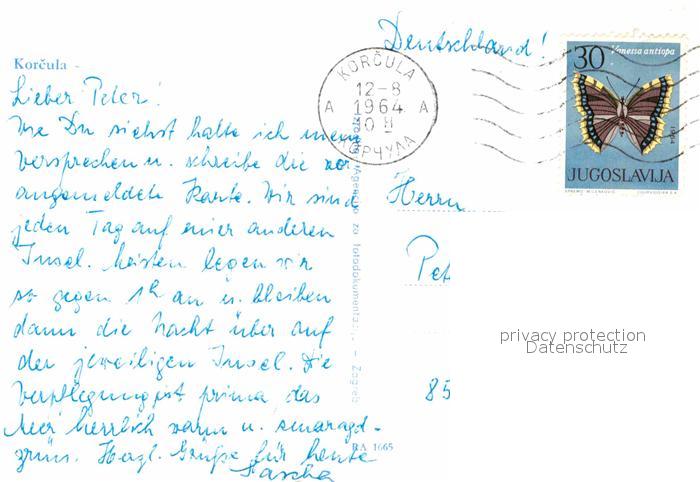 Deutschland!
30 Vanessa antiopa
1964
JUGOSLAVIJA
KORČULA
12-8
A 1964 A
10 H
КОРЧУЛА
Korčula -
Lieber Peter!
Wie Du siehst halte ich mein
Versprechen u. schreibe die vor
angemeldete Karte. Wir sind
jeden Tag auf einer anderen
Insel. Meisten legen wir
so gegen 1h an u. bleiben
dann die Nacht über auf
der jeweiligen Insel. Die
Verpflegung ist prima das
Meer herrlich warm u. smaragd-
grün. Herzl. Grüße für heute
Sascha
Agencija za fotodokumentaciju - Zagreb
RA 1665
Herrn
Pet
85
privacy protection
Datenschutz